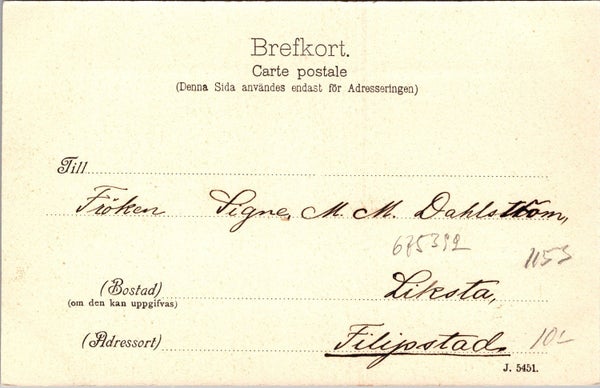 Brefkort.
Carte postale
(Denna Sida användes endast för Adresseringen)
Till
Fröken Signe M. M. Dahlström,
675392
1153
(Bostad) Liksta,
(om den kan uppgifvas)
(Adressort) Filipstad.
10-
J. 5451.